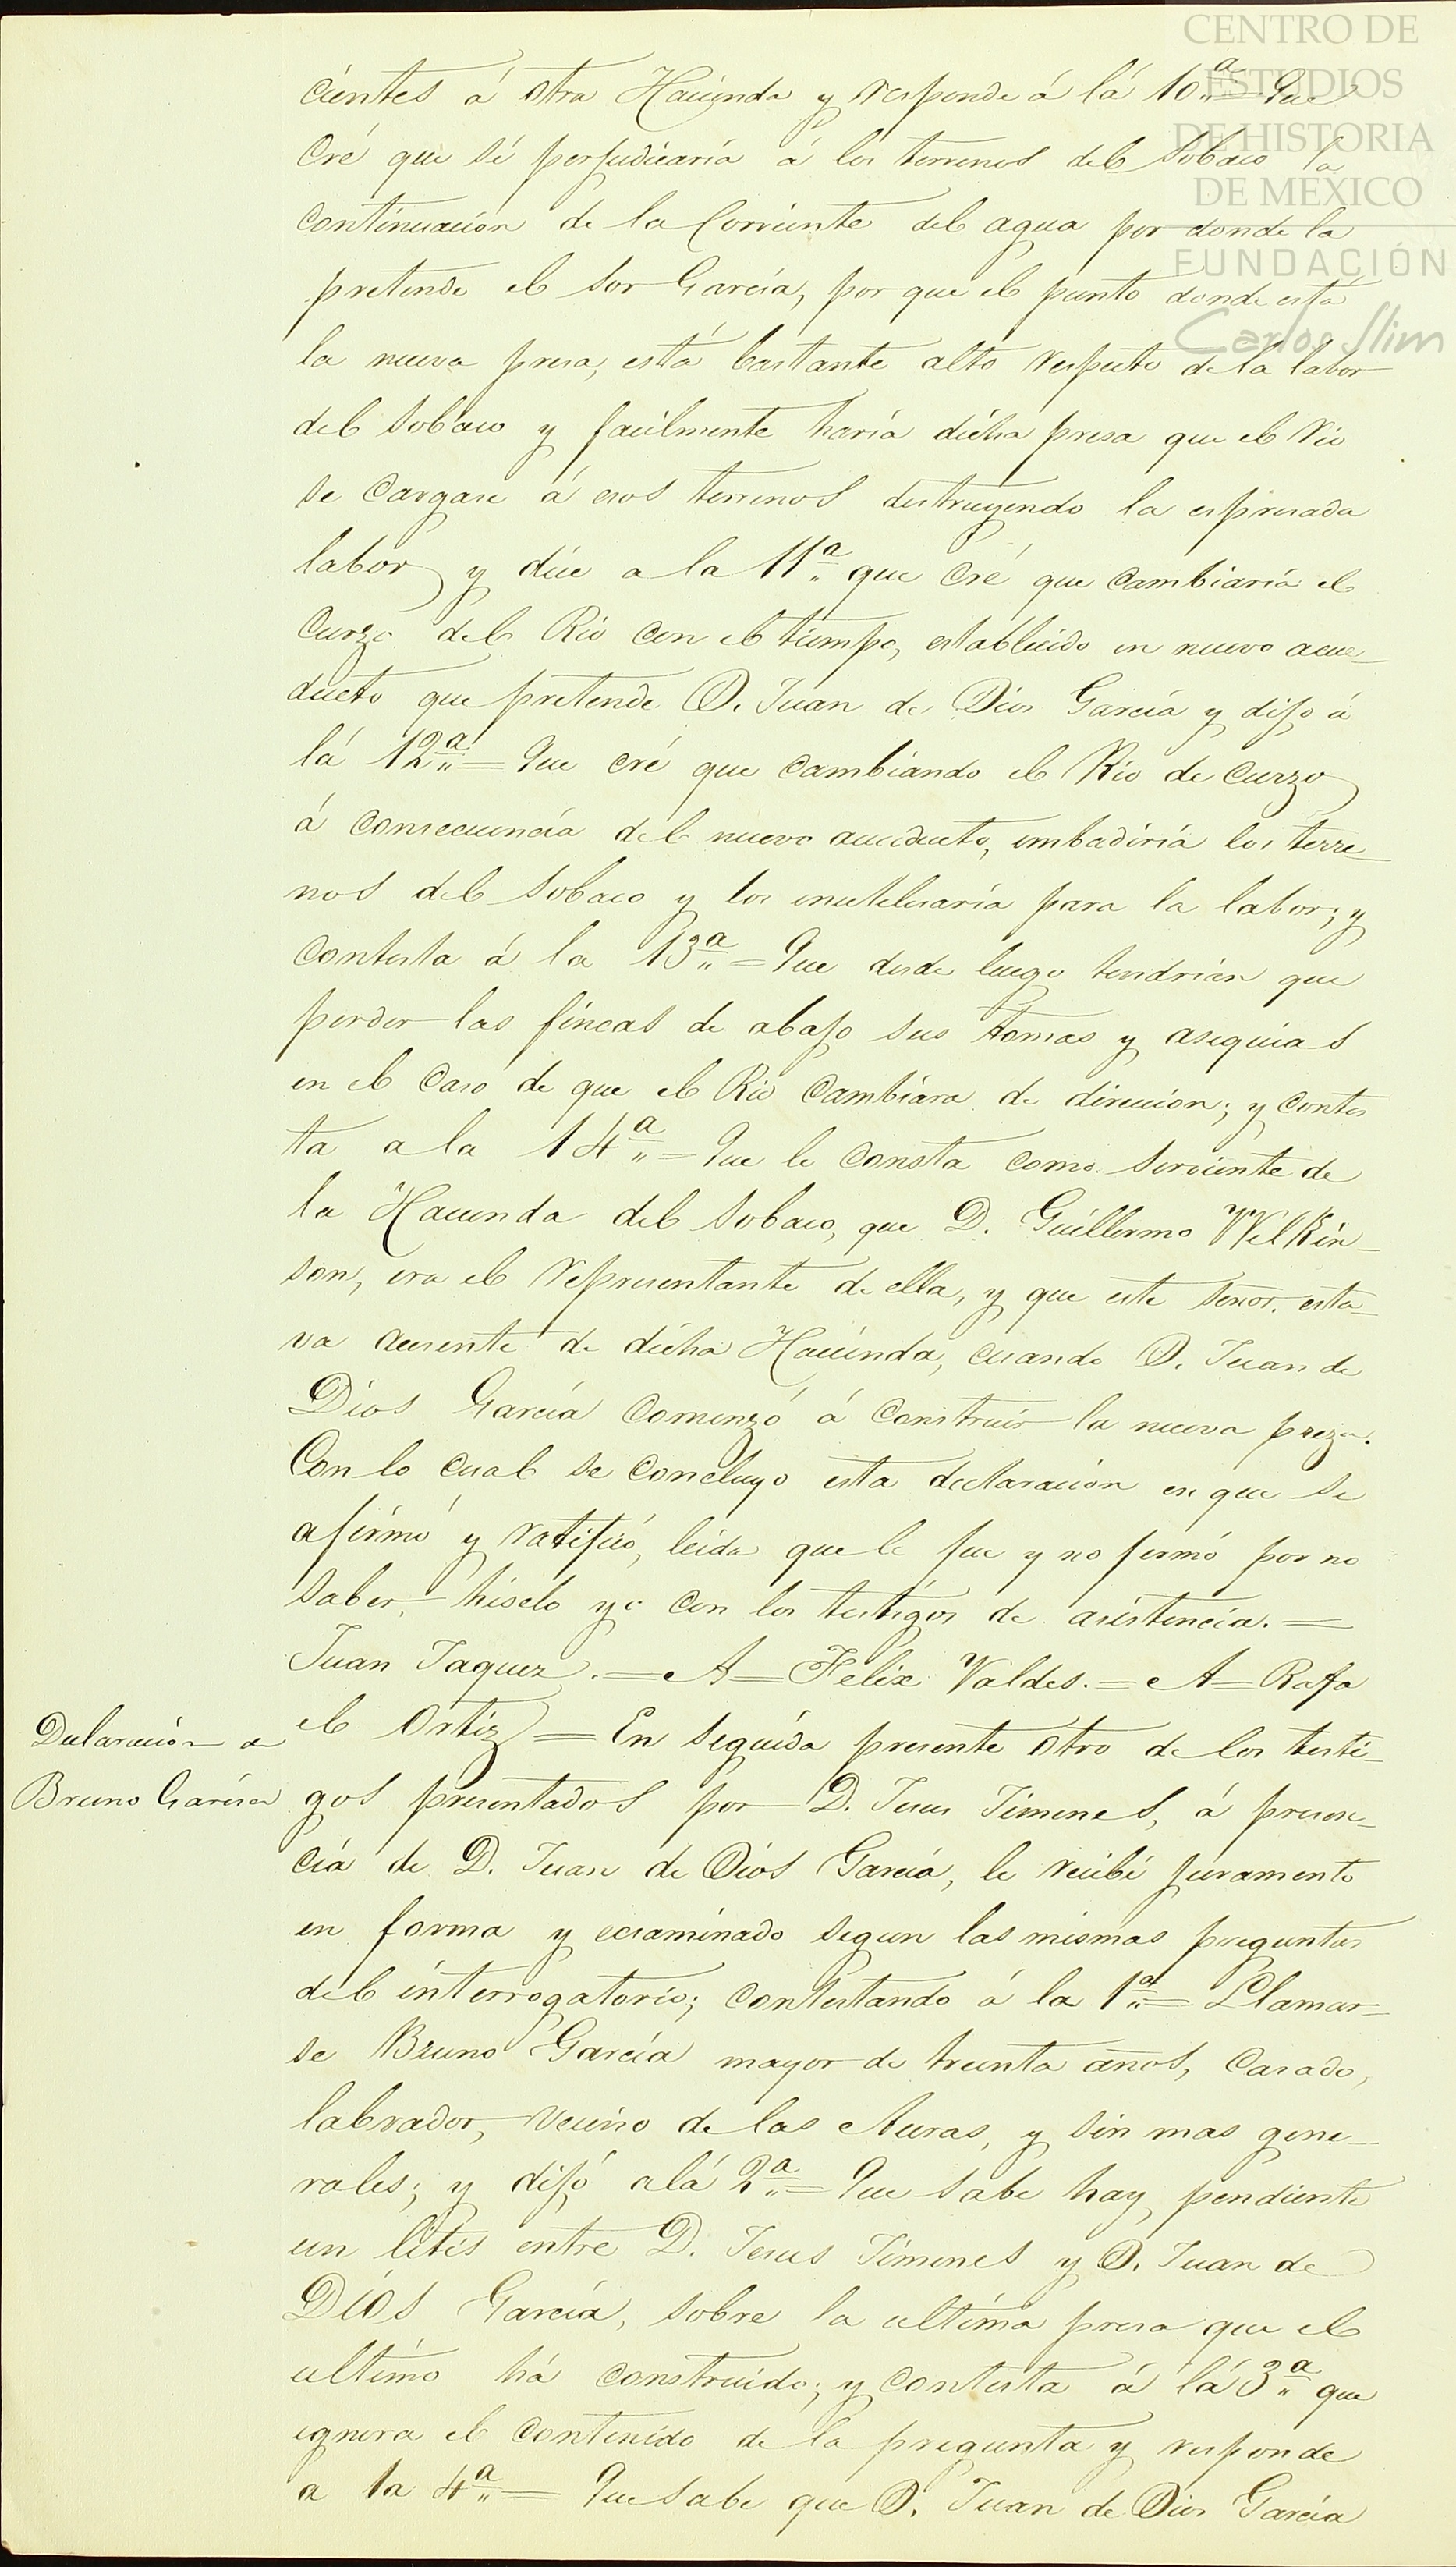 CENTRO DE
ESTUDIOS
DE HISTORIA
DE MEXICO
FUNDACIÓN
Carlos Slim
cientes á otra Hacienda y responde á lá 10.ª = Que
cré que sí perjudicaría á los terrenos del Sobaco la
continuación de la Corriente del agua por donde la
pretende el Sor García, por que el punto donde está
la nueva presa, está bastante alto respecto de la labor
del Sobaco y facilmente haría dicha presa que el Rio
se cargase á esos terrenos destruyendo la espresada
labor y dice a la 11.ª que cré que cambiaría el
curzo del Rio con el tiempo, establecido en nuevo acue-
ducto que pretende D. Juan de Dios García y dijo á
lá 12.ª = Que cré que cambiando el Rio de curzo
á consecuencia del nuevo acueducto, imbadiría los terre-
nos del Sobaco y los inutilisaría para la labor; y
contesta á la 13.ª = Que desde luego tendrían que
perder las fincas de abajo sus tomas y asequias
en el caso de que el Rio cambiara de direccion; y contes
ta a la 14.ª = Que le consta como sirviente de
la Hacienda del Sobaco, que D. Guillermo Wilkin-
son, era el representante de ella, y que este Señor esta-
va ausente de dicha Hacienda, cuando D. Juan de
Dios García comenzó á construir la nueva preza.
Con lo cual se concluyo esta declaracion en que se
afirmó y ratificó, leida que le fue y no firmó por no
saber, hiselo yo con los testigos de asistencia. =
Juan Jaquez. = A = Felix Valdes. = A = Rafa
el Ortiz = En seguida presente otro de los testi-
Declaración de
Bruno García
gos presentados por D. Jesus Jimenes, á presen-
cia de D. Juan de Dios García, le recibí juramento
en forma y ecsaminado segun las mismas preguntas
del interrogatorio; contestando á la 1.ª = Llamar-
se Bruno García mayor de treinta años, casado,
labrador, vecino de las Auras, y sin mas gene-
rales; y dijó alá 2.ª = Que sabe hay pendiente
un litis entre D. Jesus Jimenes y D. Juan de
Dios García, sobre la ultima presa que el
ultimo há construido; y contesta á lá 3.ª que
ignora el contenido de la pregunta y responde
a la 4.ª = Que sabe que D. Juan de Dios García